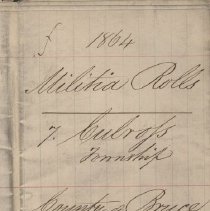 1864
Militia Rolls
7. Culross
Township
County of Bruce